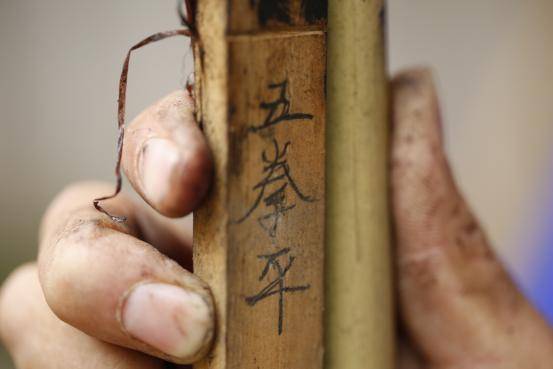 五拳平